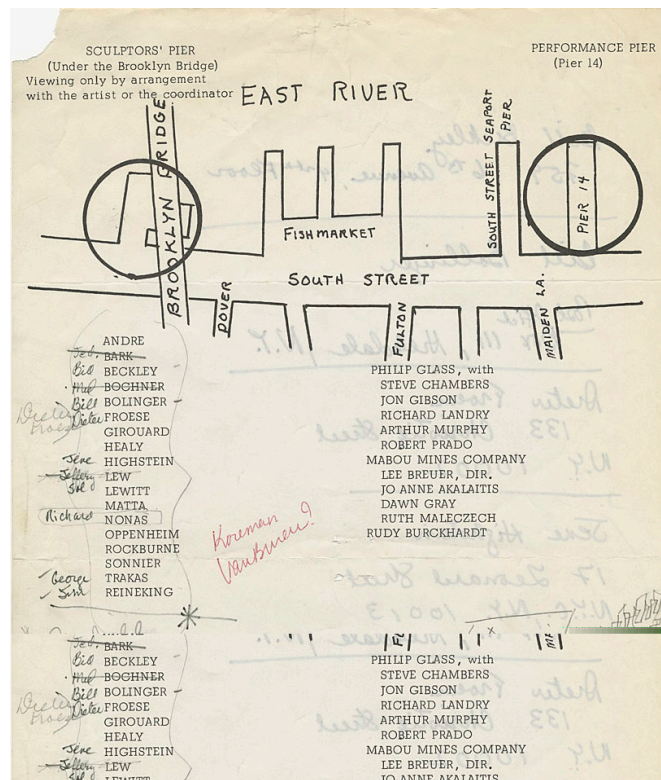 SCULPTORS' PIER
(Under the Brooklyn Bridge)
Viewing only by arrangement
with the artist or the coordinator
PERFORMANCE PIER
(Pier 14)
EAST RIVER
BROOKLYN BRIDGE
FISHMARKET
SOUTH STREET SEAPORT
PIER
PIER 14
SOUTH STREET
DOVER
FULTON
MAIDEN LA.
ANDRE
Jeb. BARK
Bio BECKLEY
Mel BOCHNER
Bill BOLINGER
Dieter FROESE
Dieter
Froese
GIROUARD
HEALY
Jene HIGHSTEIN
Jeffery LEW
Sol LEWITT
MATTA
Richard NONAS
OPPENHEIM
ROCKBURNE
SONNIER
George TRAKAS
Jim REINEKING
PHILIP GLASS, with
STEVE CHAMBERS
JON GIBSON
RICHARD LANDRY
ARTHUR MURPHY
ROBERT PRADO
MABOU MINES COMPANY
LEE BREUER, DIR.
JO ANNE AKALAITIS
DAWN GRAY
RUTH MALECZECH
RUDY BURCKHARDT
Koreman
VanBuren?
Jeb. BARK
Bio BECKLEY
Mel BOCHNER
Bill BOLINGER
Dieter FROESE
Dieter
Froese
GIROUARD
HEALY
Jene HIGHSTEIN
Jeffery LEW
Sol LEWITT
PHILIP GLASS, with
STEVE CHAMBERS
JON GIBSON
RICHARD LANDRY
ARTHUR MURPHY
ROBERT PRADO
MABOU MINES COMPANY
LEE BREUER, DIR.
JO ANNE AKALAITIS